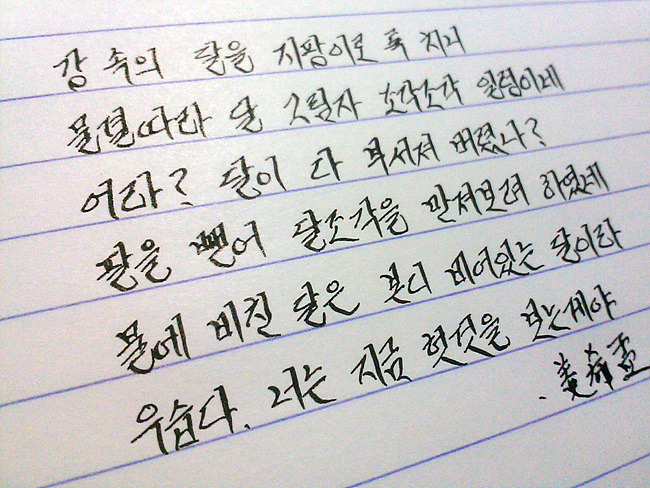 강 속의 달을 지팡이로 툭 치니
물결따라 달 그림자 조각조각 일렁이네
어라? 달이 다 부서져 버렸나?
팔을 뻗어 달조각을 만져보려 하였네
물에 비친 달은 본디 비어있는 달이라
우습다. 너는 지금 헛것을 보는게야
姜希孟